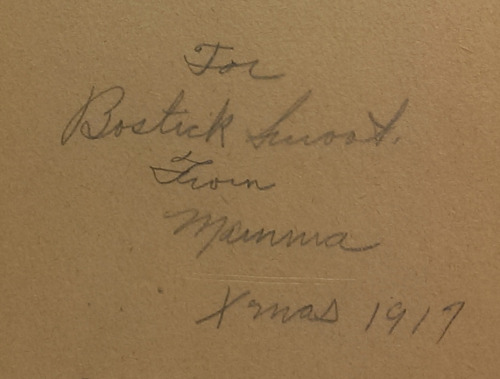 For
Bostick Smoot.
From
Mamma
Xmas 1917